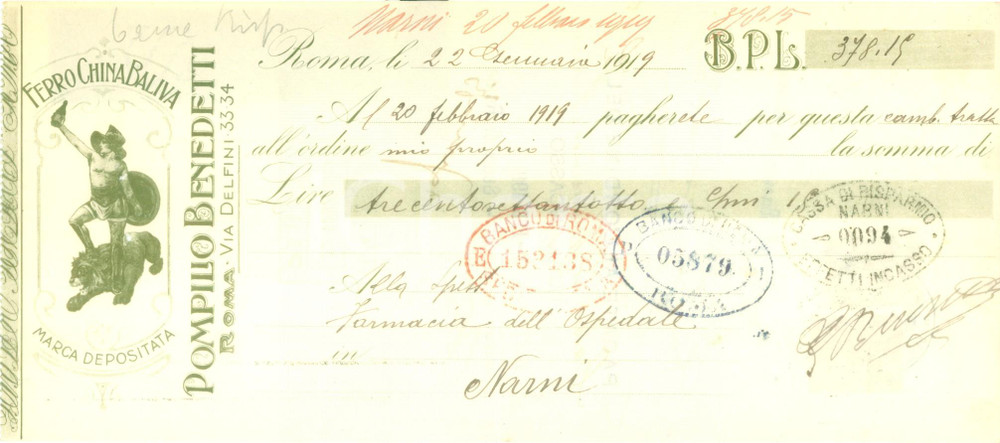 Narni 20 febbraio 1919 378.15
Roma, li 22 Gennaio 1919 B.P.L. 378.15
Al 20 febbraio 1919 pagherete per questa camb. tratta
all'ordine mio proprio la somma di
Lire trecentosettantotto e C/mi 15
Alla Spett
Farmacia dell'Ospedale
in
Narni
FERRO CHINA BALIVA
MARCA DEPOSITATA
POMPILIO BENEDETTI
ROMA - VIA DELFINI, 33 34
BANCO DI ROMA
153138
BANCO DI ROMA
05879.
ROMA
CASSA DI RISPARMIO
NARNI
0094
EFFETTI INCASSO